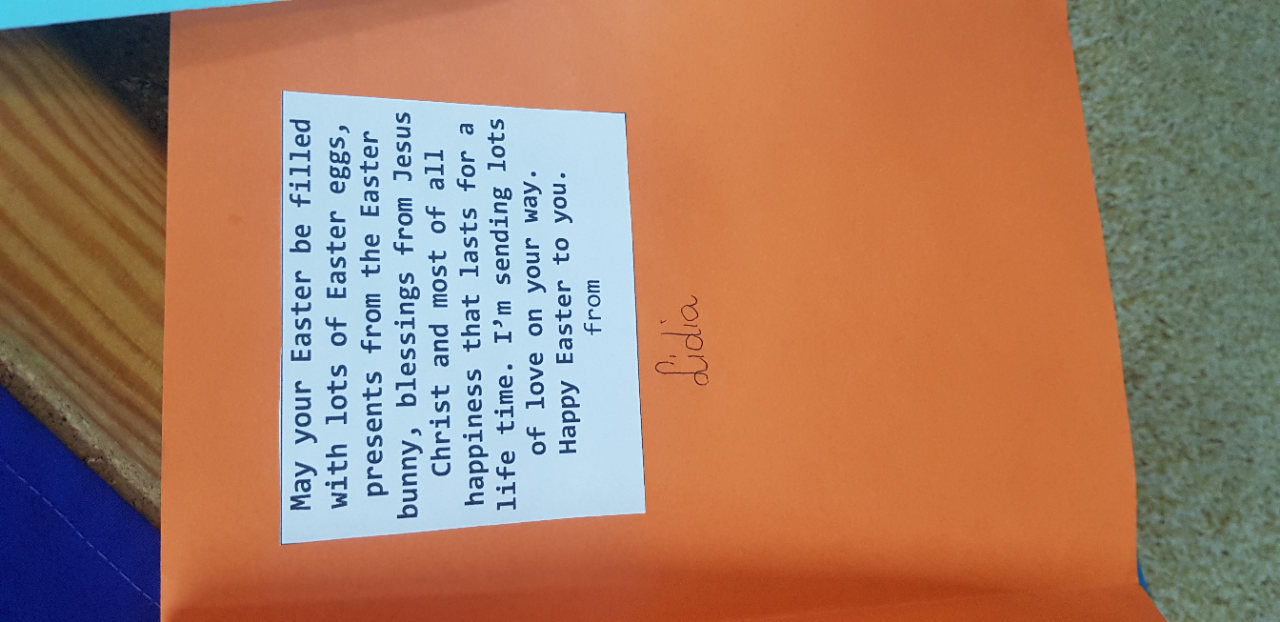 May your Easter be filled
with lots of Easter eggs,
presents from the Easter
bunny, blessings from Jesus
Christ and most of all
happiness that lasts for a
life time. I’m sending lots
of love on your way.
Happy Easter to you.
from
Lidia